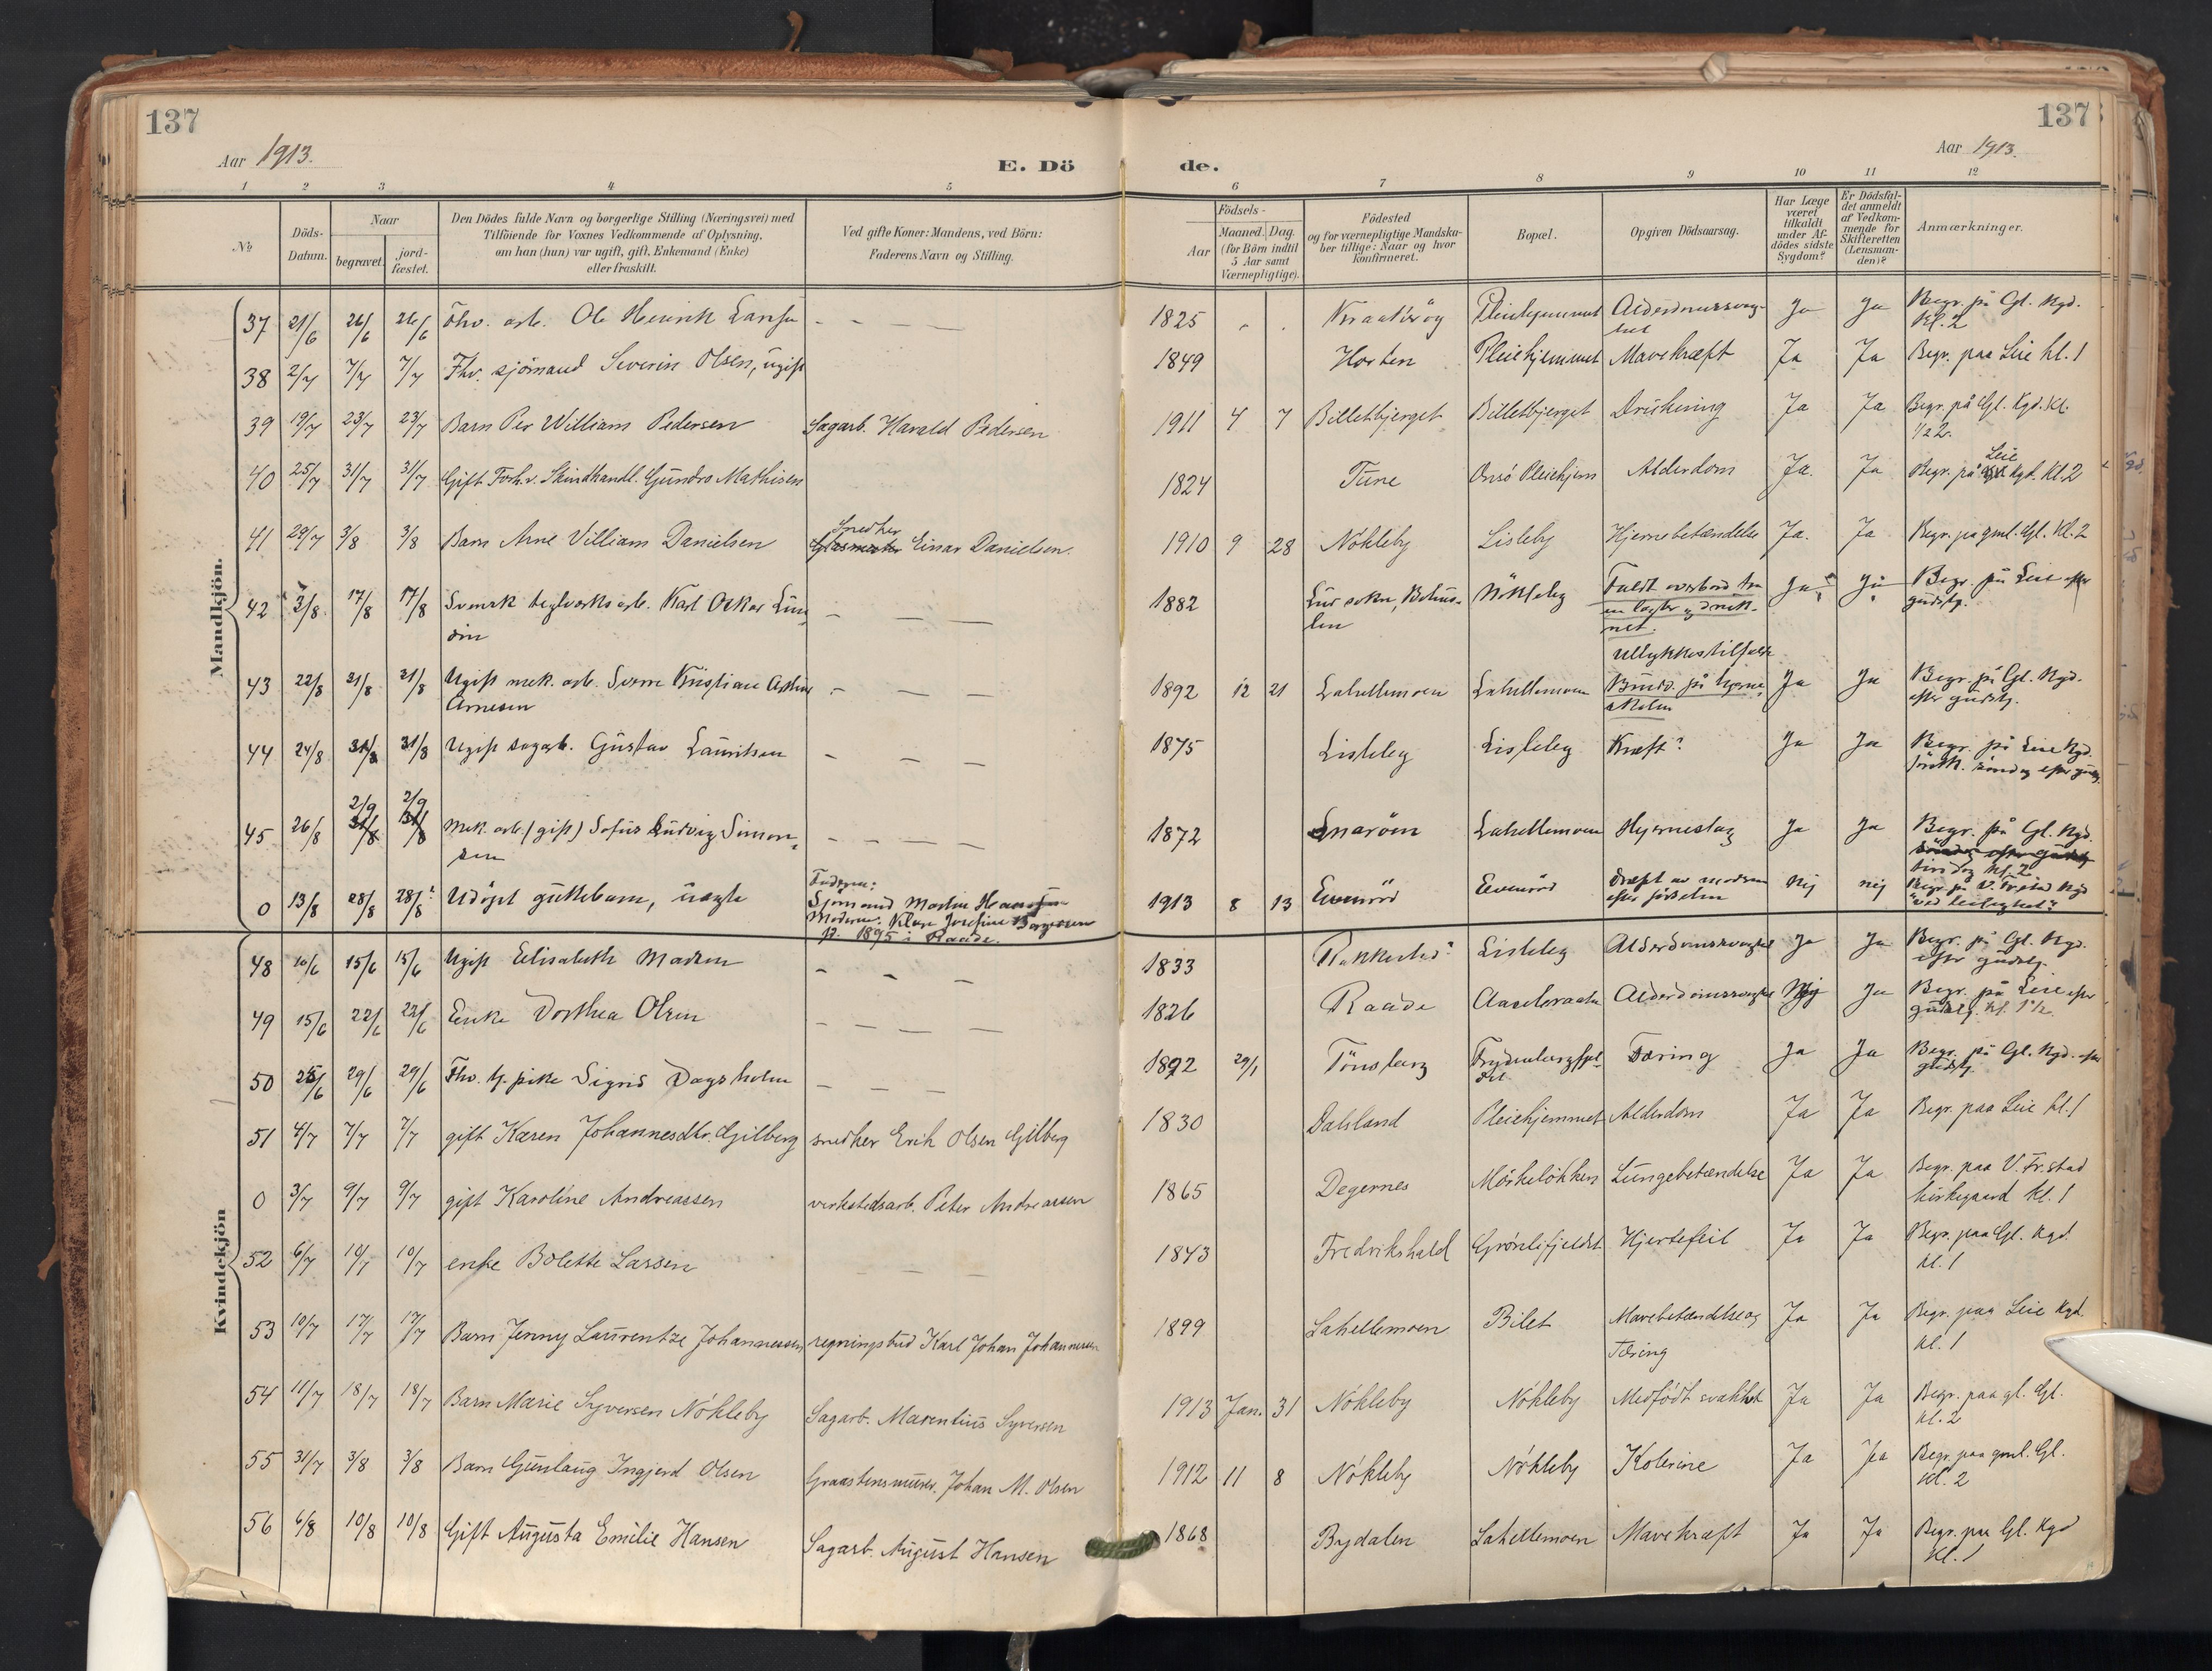 137
137
Aar 1913.
E. Dö
de.
Aar 1913.
1 2 3 4 5 6 7 8 9 10 11 12
№
Döds-Datum.
Naar
begravet.
jord-fæstet.
Den Dödes fulde Navn og borgerlige Stilling (Næringsvei) med
Tilföiende for Voxnes Vedkommende af Oplysning,
om han (hun) var ugift, gift, Enkemand (Enke)
eller fraskilt.
Ved gifte Koner: Mandens, ved Börn:
Faderens Navn og Stilling.
Födsels-
Aar
Maaned. Dag.
(for Börn indtil
5 Aar samt
Værnepligtige).
Födested
og for værnepligtige Mandska-
ber tillige: Naar og hvor
konfirmeret.
Bopæl.
Opgiven Dödsaarsag.
Har Læge
været
tilkaldt
under Af-
dödes sidste
Sygdom?
Er Dödsfal-
det anmeldt
af Vedkom-
mende for
Skifteretten
(Lensman-
den)?
Anmærkninger.
Mandkjön.
37 21/6 26/6 26/6 Fhv. arb. Ole Henrik Larsen — — — — 1825 Kraakerøy Pleiehjemmet Alderdomssvag-
het Ja Ja Begr. på Gl. Kgd.
Kl. 2
38 2/7 7/7 7/7 Fhv. sjömand Severin Olsen, ugift 1849 Horten Pleiehjemmet Mavekræft Ja Ja Begr. paa Leie kl. 1
39 19/7 23/7 23/7 Barn Per William Pedersen Sagarb. Harald Pedersen 1911 4 7 Billetbjerget Billetbjerget Drukning Ja Ja Begr. på Gl. Kgd. Kl.
1/2 2.
40 25/7 31/7 31/7 Gift Forh.v. Skindhandl. Gundro Mathisen 1824 Tune Onsö Pleiehjem Alderdom Ja. Ja Begr. på Leie Kgd. Kl. 2
41 29/7 3/8 3/8 Barn Arne Villiam Danielsen Snedker Einar Danielsen. 1910 9 28 Nökleby Lisleby Hjernebetændelse Ja. Ja Begr. på gml. Gl. Kl. 2
42 2/8 17/8 17/8 Svensk teglverksarb. Karl Oskar Lun-
din — — — 1882 Lur sokn, Bohus-
len Nökleby Faldt overbord fra
en lægter og druk-
net.
Ulykkestilfælde Ja Ja Begr. på Leie efter
gudstj.
43 22/8 31/8 31/8 Ugift mek. arb. Sverre Kristian Arthur
Arnesen — — — 1892 12 21 Lahellemoen Lahellemoen Brudd på hjerne-
skolen Ja Ja Begr. på Gl. Kgd.
efter gudstj.
44 24/8 31/8 31/8 Ugift sagarb. Gustav Lauritsen — — — 1875 Lisleby Lisleby Kræft? Ja Ja Begr. på Leie Kgd.
søndag efter gudstj.
45 26/8 2/9 2/9 Mek. arb. (gift) Sofus Ludvig Simon-
sen — — — — 1872 Snaröen Lahellemoen Hjerneslag Ja Ja Begr. på Gl. Kgd.
tirsdag kl. 2
0 13/8 28/8 28/8? Udöpt guttebarn, uægte Faderen:
Sjömand Martin Hansen
Moderen: Klara Josefine Borgersen
f. 1895 i Raade. 1913 8 13 Evenröd Evenröd dræpt av moderen
efter fødselen nej nej Begr. på V. Fr.stad Kgd
"ved leilighet"
Kvindekjön
48 10/6 15/6 15/6 Ugift Elisabeth Madsen — — — 1833 Rakkestad? Lisleby Alderdomssvaghet Ja Ja Begr. på Gl. Kgd.
efter gudstj.
49 15/6 22/6 22/6 Enke Dorthea Olsen — — — — 1826 Raade Alderdomssvaghet Nej Ja Begr. på Leie efter
gudstj. kl. 1 1/2
50 25/6 29/6 29/6 Fhv. tj. pike Sigrid Dagsholm — — — 1892 29/1 Tönsberg Tæring Ja Ja Begr. på Gl. Kgd. efter
gudstj.
51 4/7 7/7 7/7 gift Karen Johannesdtr. Gilberg snedker Erik Olsen Gilberg 1830 Dalsland Pleiehjemmet Alderdom Ja Ja Begr. paa Leie kl. 1
0 3/7 9/7 9/7 gift Karoline Andreassen verkstedsarb. Peter Andreassen 1865 Degernes Mörkelökken Lungebetændelse Ja Ja Begr. paa V. Fr.stad
kirkegaard kl. 1
52 6/7 10/7 10/7 enke Bolette Lassen — — — 1843 Fredrikshald Grönlifjeldet Hjertefeil Ja Ja Begr. paa Gl. Kgd.
kl. 1
53 10/7 17/7 17/7 Barn Jenny Laurentze Johannessen regningsbud Karl Johan Johannessen 1899 Lahellemoen Bilet Mavebetændelse og
Tæring Ja Ja Begr. paa Leie Kgd.
kl. 1
54 11/7 18/7 18/7 Barn Marie Syversen Nökleby Sagarb. Marentius Syversen 1913 Jan. 31 Nökleby Nökleby Medfödt svakhet Ja Ja Begr. paa gl. Gl.
kl. 2
55 31/7 3/8 3/8 Barn Gunlaug Ingjerd Olsen Graastensmurer. Johan M. Olsen 1912 11 8 Nökleby Nökleby Kolerine Ja Ja Begr. paa gml. Gl.
kl. 2
56 6/8 10/8 10/8 Gift Augusta Emilie Hansen Sagarb. August Hansen 1868 Brydalen Lahellemoen Mavekræft Ja Ja Begr. paa Gl. Kgd
kl. 1